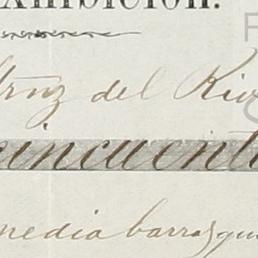 xhibición.
del Riv
cincuenta
media barrasqu